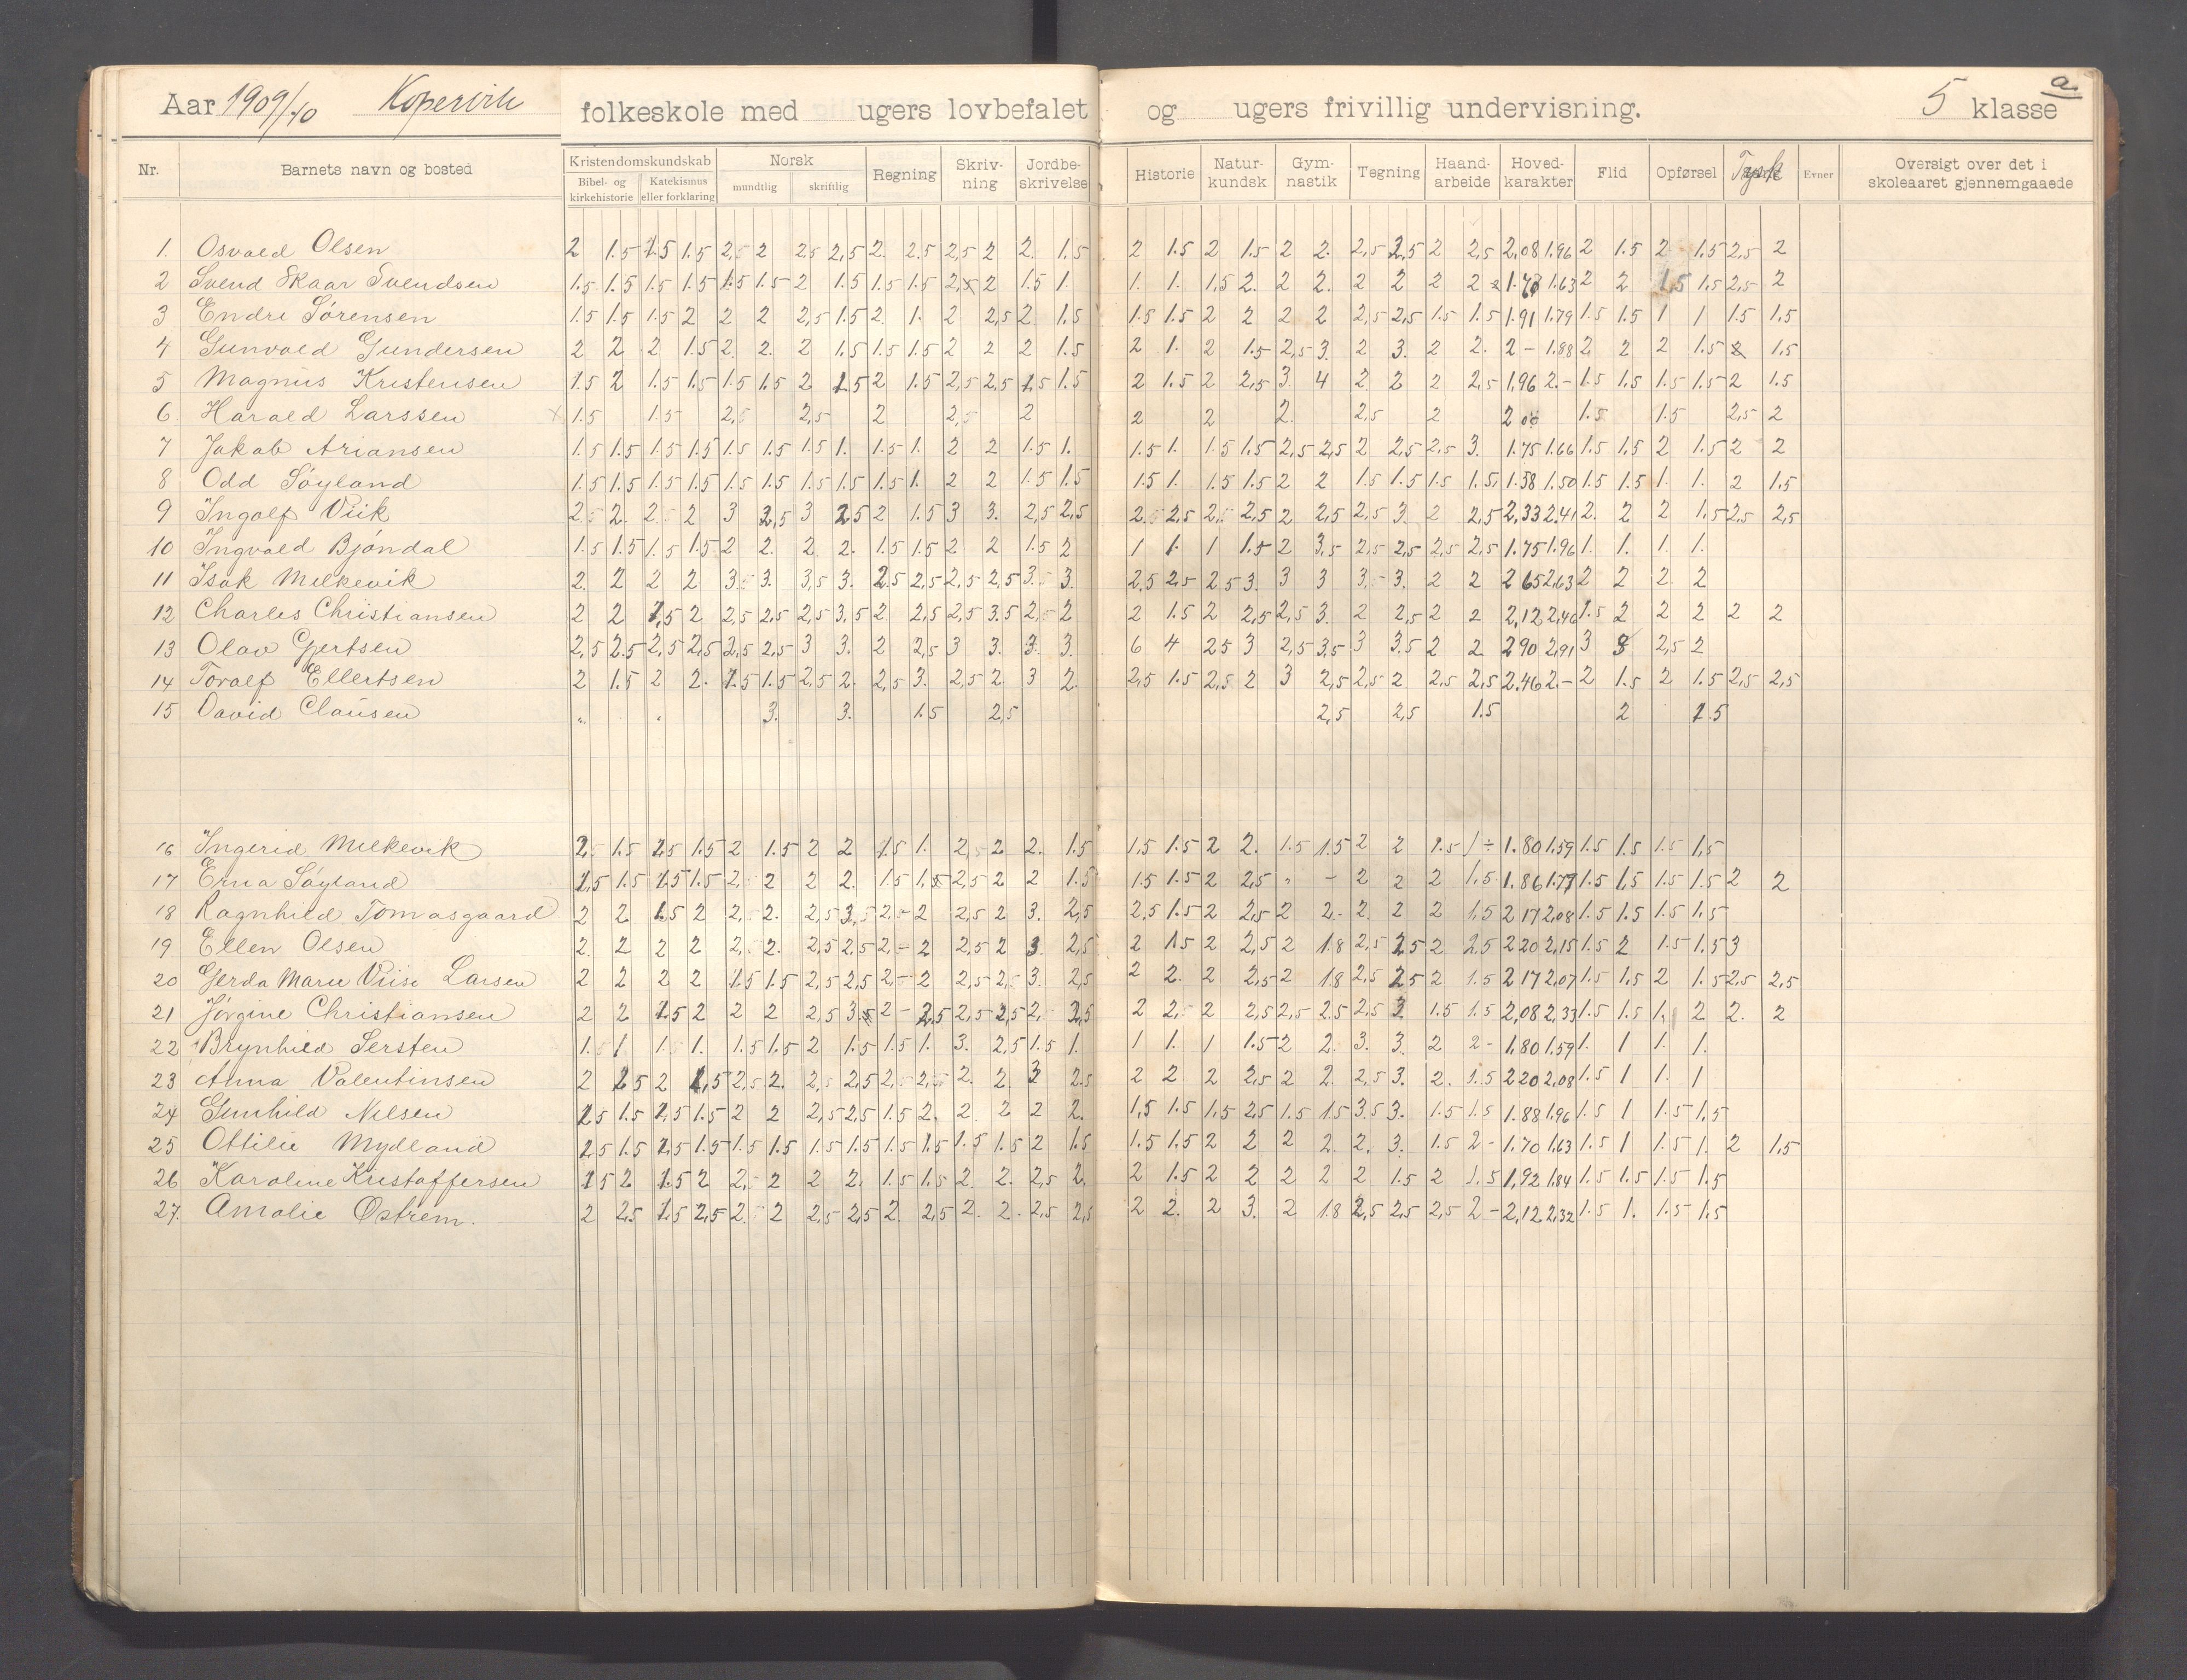 Aar 1909/10 Kopervik folkeskole med ugers lovbefalet og ugers frivillig undervisning. 5 klasse a.
Nr. Barnets navn og bosted Kristendomskundskab Norsk Regning Skriv-ning Jordbe-skrivelse Historie Natur-kundsk. Gym-nastik Tegning Haand-arbeide Hoved-karakter Flid Opførsel Tysk Evner Oversigt over det i skoleaaret gjennemgaaede
Bibel- og kirkehistorie Katekismus eller forklaring mundtlig skriftlig
1. Osvald Olsen 2 1.5 1.5 1.5 2,5 2 2,5 2,5 2. 2.5 2,5 2 2. 1.5 2 1.5 2 1.5 2 2. 2,5 2,5 2 2,5 2,08 1.96 2 1.5 2 1.5 2,5 2
2 Svend Skaar Svendsen 1.5 1.5 1.5 1.5 1.5 1.5 2 1.5 1.5 1.5 2 1.5 1. 1. 1. 1,5 2. 2 2. 2 2 2 2 1.63 2 2 1,5 1.5 2,5 2
3 Endre Sørensen 1.5 1.5 1.5 2 2 2 2,5 1.5 2. 1. 2 2,5 2 1.5 1.5 1.5 2 2 2 2 2,5 2,5 1.5 1.5 1.91 1.79 1.5 1.5 1 1 1.5 1.5
4 Gunvald Gundersen 2 2 2 1.5 2. 2. 2 1.5 1.5 1.5 2 2 2 1.5 2 1. 2 1.5 2,5 3. 2 3. 2 2. 2 - 1.88 2 2 2 1.5 1.5
5 Magnus Kristensen 1.5 2 1.5 1.5 1.5 1.5 2 1.5 2 1.5 2,5 2,5 1.5 1.5 2 1.5 2 2,5 3. 4 2 2 2 2,5 1,96 2.- 1.5 1.5 1.5 1.5 2 1.5
6. Harald Larssen x 1.5 1.5 2,5 2,5 2 2,5 2 2 2 2. 2,5 2 2 00 1.5 1.5 2,5 2
7 Jakob Ariansen 1.5 1.5 1.5 1.5 1.5 1.5 1.5 1. 1.5 1. 2 2 1.5 1. 1.5 1. 1.5 1.5 2,5 2,5 2 2,5 2,5 3. 1.75 1.66 1.5 1,5 2 1.5 2 2
8 Odd Søyland 1.5 1.5 1.5 1.5 1.5 1.5 1.5 1.5 1.5 1. 2 2 1.5 1.5 1.5 1. 1.5 1.5 2 2 1.5 1.5 1.5 1.5 1.58 1.50 1.5 1.5 1. 1. 2 1.5
9 Ingolf Viik 2,5 2. 2,5 2 3 2,5 3 2,5 2 1.5 3 3. 2,5 2,5 2,5 2,5 2,5 2,5 2 2,5 2,5 3. 2 2,5 2,33 2.41 2. 2 2 1.5 2,5 2,5
10 Ingvald Bjøndal 1.5 1.5 1.5 1.5 2 2. 2. 2. 1.5 1.5 2 2 1.5 2 1 1. 1 1.5 2 3,5 2,5 2,5 2,5 2,5 1.75 1.96 1. 1. 1. 1.
11 Isak Melkevik 2. 2 2 2 3,5 3. 3,5 3. 2.5 2,5 2,5 2,5 3,5 3. 2,5 2,5 2,5 3. 3 3 3,5 3. 2 2 2 65 2,63 2 2 2. 2
12 Charles Christiansen 2 2 1,5 2 2,5 2,5 2,5 3,5 2 2,5 2,5 3.5 2,5 2 2 1.5 2 2,5 2,5 3. 2 2,5 2 2 2,12 2,46 1.5 2 2 2 2 2
13 Olav Gjertsen 2,5 2.5 2,5 2,5 2,5 2,5 3 3. 2 2,5 3 3. 3. 3. 6 4 2,5 3 2,5 3,5 3 3.5 2 2 2 90 2,91 3 3 2,5 2
14 Toralf Ellertsen 2 1.5 2 2. 1.5 1.5 2,5 2. 2,5 3. 2,5 2. 3 2. 2,5 1.5 2,5 2 3 2,5 2,5 2 2,5 2,5 2.46 2.- 2 1.5 2 1.5 2,5 2,5
15 David Clausen " " 3. 3. 1.5 2,5 2,5 2,5 1.5 2 1.5
16 Ingerid Melkevik 2,5 1.5 1,5 1.5 2 1.5 2 2 1.5 1. 2,5 2 2. 1.5 1,5 1.5 2 2. 1.5 1.5 2 2 1.5 1 ÷ 1.80 1.59 1.5 1.5 1.5 1,5
17 Erna Søyland 1,5 1.5 1.5 1.5 2,5 2 2 2. 1.5 1.5 2,5 2 2 1.5 1.5 1.5 2 2,5 " - 2 2 2 1.5 1.86 1.77 1.5 1,5 1.5 1.5 2 2
18 Ragnhild Tomasgaard 2 2 1.5 2 2,5 2. 2,5 3,5 2,- 2 2,5 2 3. 2,5 2,5 1.5 2 2,5 2 2.- 2. 2 2 1,5 2 17 2,08 1.5 1.5 1.5 1.5
19 Ellen Olsen 2. 2 2 2 2,5 2. 2,5 2,5 2,- 2 2,5 2 3. 2,5 2 1.5 2 2,5 2 1.8 2,5 2,5 2 2,5 2 20 2,15 1.5 2 1.5 1.5 3
20 Gerda Marie Viise Larsen 2 2 2 2 1.5 1.5 2,5 2,5 2,- 2 2,5 2,5 3. 2,5 2 2. 2 2,5 2 1.8 2,5 2,5 2 1.5 2 17 2,07 1.5 1,5 2 1.5 2,5 2,5
21 Jørgine Christiansen 2 2 1.5 2 2 2 2,5 3.5 2 - 2,5 2,5 2,5 2,5 2,5 2 2,5 2 2,5 2,5 2.5 2,5 3 1.5 1.5 2,08 2,33 1.5 1.5 1. 2 2. 2
22 Brynhild Sersten 1.5 1 1.5 1. 1.5 1.5 2 1.5 1.5 1. 3. 2,5 1.5 1. 1 1. 1 1.5 2 2. 3. 3. 2 2 - 1,80 1.59 1. 1 1. 1.
23 Anna Valentinsen 2 1.5 2 1,5 2,5 2. 2,5 2,5 2,5 2,5 2. 2. 3 2.5 2 2 2 2,5 2 2. 2,5 3. 2. 1.5 2 20 2,08 1.5 1 1. 1
24 Gunhild Nilsen 1.5 1.5 1.5 1.5 2 2 2,5 2,5 1.5 2. 2 2 2 2. 1,5 1.5 1,5 2,5 1.5 1.5 3.5 3. 1.5 1.5 1.88 1.96 1.5 1 1.5 1.5
25 Ottilie Mydland 1.5 1.5 1.5 1.5 1.5 1.5 1.5 1.5 1.5 1.5 1.5 1.5 2 1.5 1.5 1.5 2 2 2 2. 2. 3. 1.5 2 - 1.70 1.63 1.5 1 1.5 1. 2 1,5
26 Karoline Kristoffersen 1.5 2 1.5 2 2,5 2 2 2. 1.5 1.5 2. 2. 2,5 2. 2 1.5 2 2 2 2 2 1.5 2 1.5 1,92 1.84 1.5 1.5 1.5 1.5
27. Amalie Østrem. 2 2,5 1.5 2,5 2,5 2 2,5 2,5 2. 2,5 2. 2. 2,5 2,5 2 2. 2 3. 2 1.8 2,5 2,5 2,5 2 - 2,12 2,32 1.5 1. 1.5 1.5